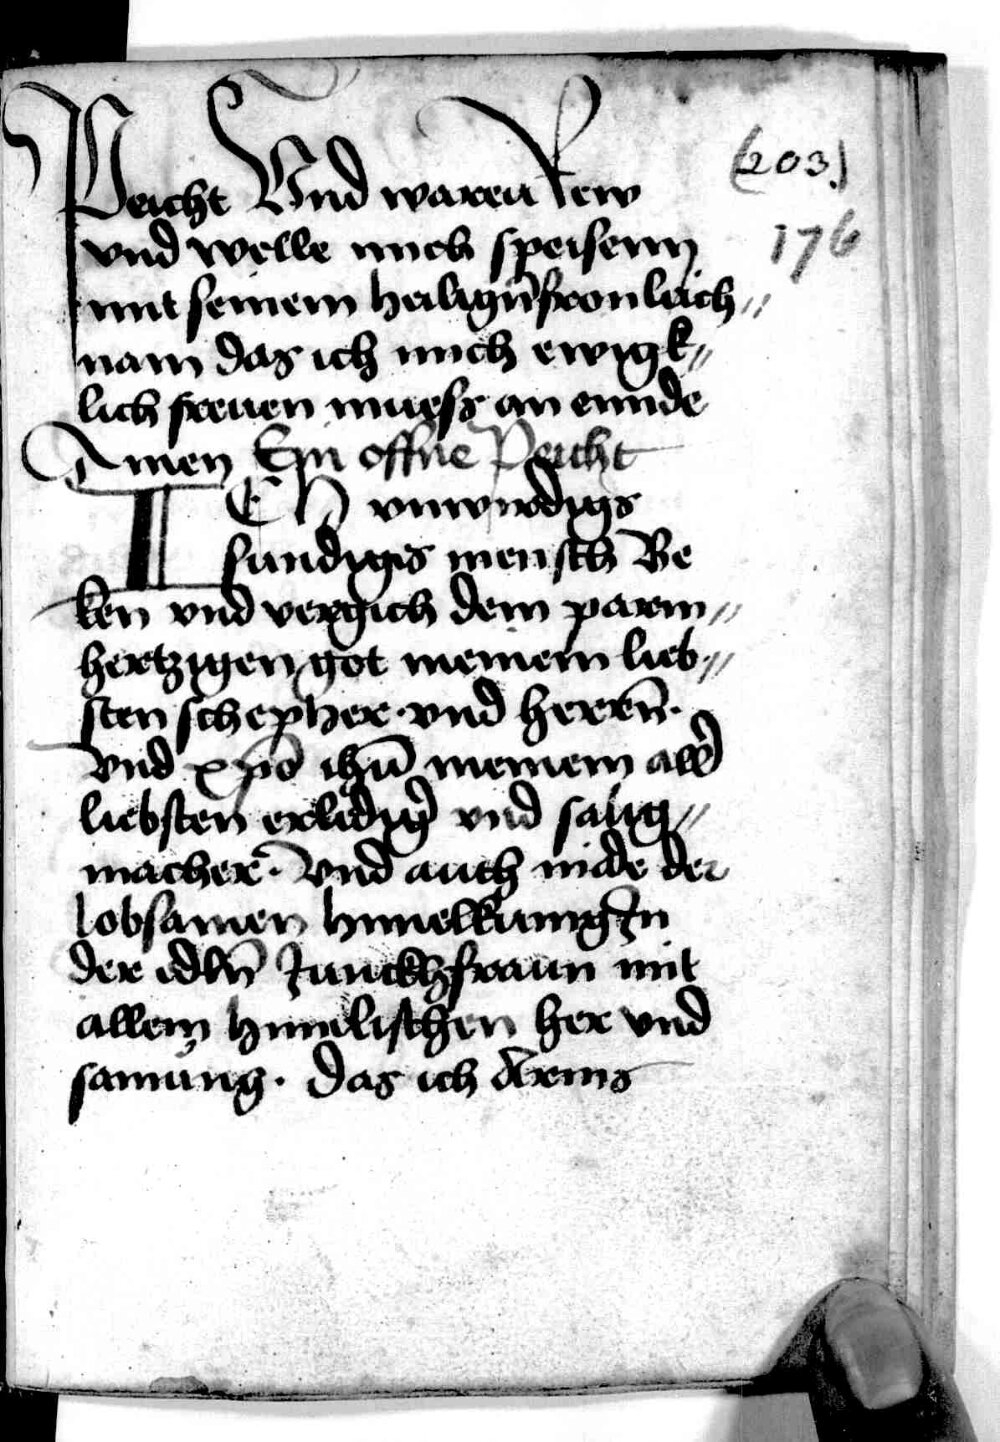 Peicht Vnd waren Rew
(203)
vnd welle mich speisenn
176
mit seinem heilign̄ fronleich„
nam das ich mich ewigk„
lich freuen muess an ennde
Amen Ein offne Peicht
ICH vnwirdigs
sundigs mensch Be
ken vnd vergich dem parm„
hertzigen got meinem lieb„
sten schepher · vnd herrn̄ ·
Vnd xp̄o ih̄u meinem all̄
liebsten erlediḡ vnd salig„
macher · Vnd auch
lobsamen himelkunigin
der edln̄ Junckhfraun mit
allem himelischen her vnd
samung · Das ich Arms